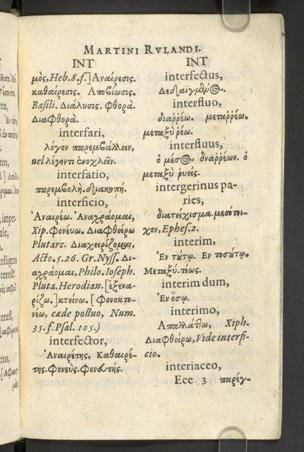 MARTINI RVLANDI.
INT
μὸς, Heb. 8. f.] Ἀναίρεσις.
καθαίρεσις. Ἀποβίωσις.
Basili. Διάλυσις. Φθορά.
Διαφθορά.
interfari,
λόγον παρεμβάλλειν,
vel λέγοντι ἐνοχλεῖν.
interfatio,
παρεμβολή. διακοπή.
interficio,
Ἀναιρέω. Ἀναχράομαι,
Xip. Φονεύω. Διαφθείρω
Plutarc. Διαχειρίζομαι,
Acto. 5. 26. Gr. Nyss. Δι-
αχράομαι, Philo. Ioseph.
Pluta. Herodian. [ἐξενα-
ρίζω.] κτείνω. [Φονοκτο-
νέω, cæde polluo, Num.
35. f. Psal. 105.)
interfector,
Ἀναιρέτης. Καθαιρέ-
της. Φονεύς. Φονευτής.
INT
interfectus,
Δεδαϊγμένος.
interfluo,
διαρρέω. μεταρρέω.
μεταξὺ ῥέω.
interfluus,
ὁ μέσος διαρρέων. ὁ
μεταξὺ ῥυείς.
intergerinus pa-
ries,
διατείχισμα. μεσότοι-
χον, Ephes. 2.
interim,
Ἐν τούτῳ. Ἐν τοσούτῳ.
Μεταξύ. τίως.
interim dum,
Ἐν ὅσῳ.
interimo,
Ἀπαλλάττω, Xiph.
Διαφθείρω, Vide interfi-
cio.
interiaceo,
Eee 3 παρέγ-